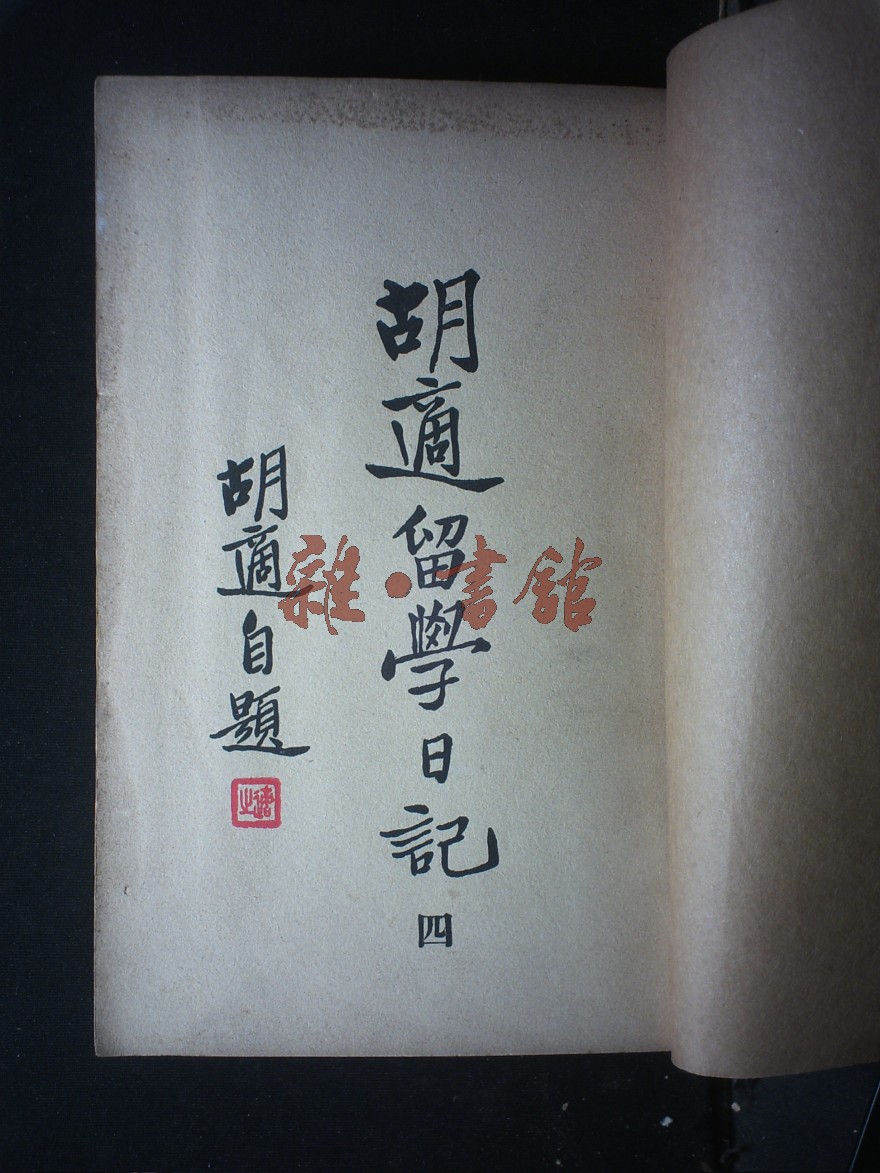 胡適留學日記
四
胡適自題
適之
雜·書館